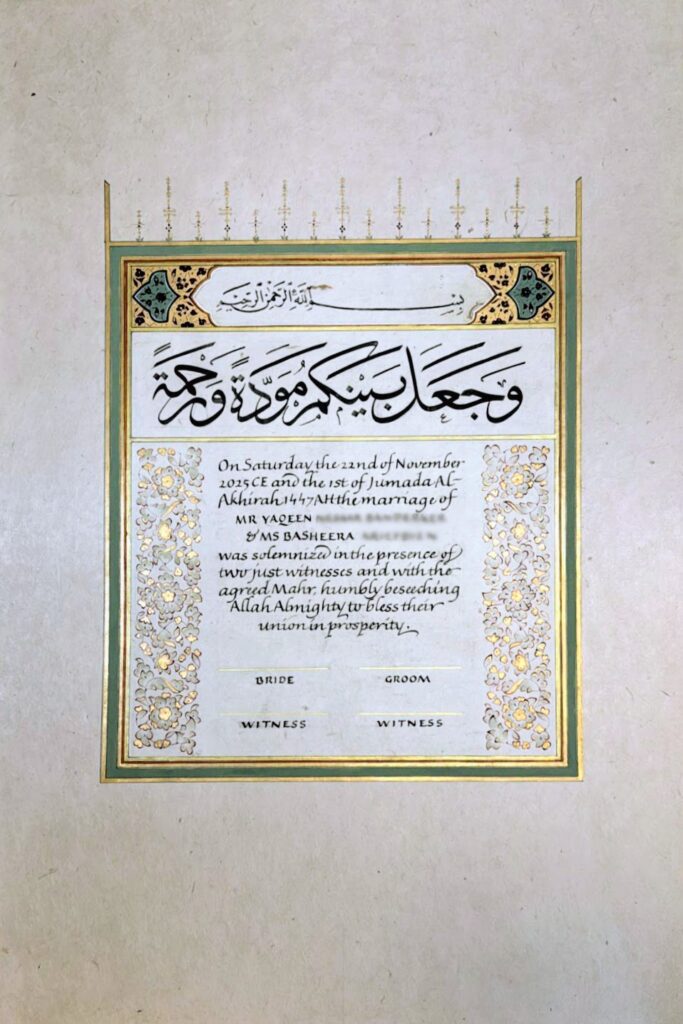 بسم الله الرحمن الرحيم
وَجَعَلَ بَيْنَكُمْ مَوَدَّةً وَرَحْمَةً
On Saturday the 22nd of November
2025 CE and the 1st of Jumada Al-
Akhirah 1447 AH the marriage of
MR YAQEEN
& MS BASHEERA
was solemnized in the presence of
two just witnesses and with the
agreed Mahr, humbly beseeching
Allah Almighty to bless their
union in prosperity.
BRIDE GROOM
WITNESS WITNESS